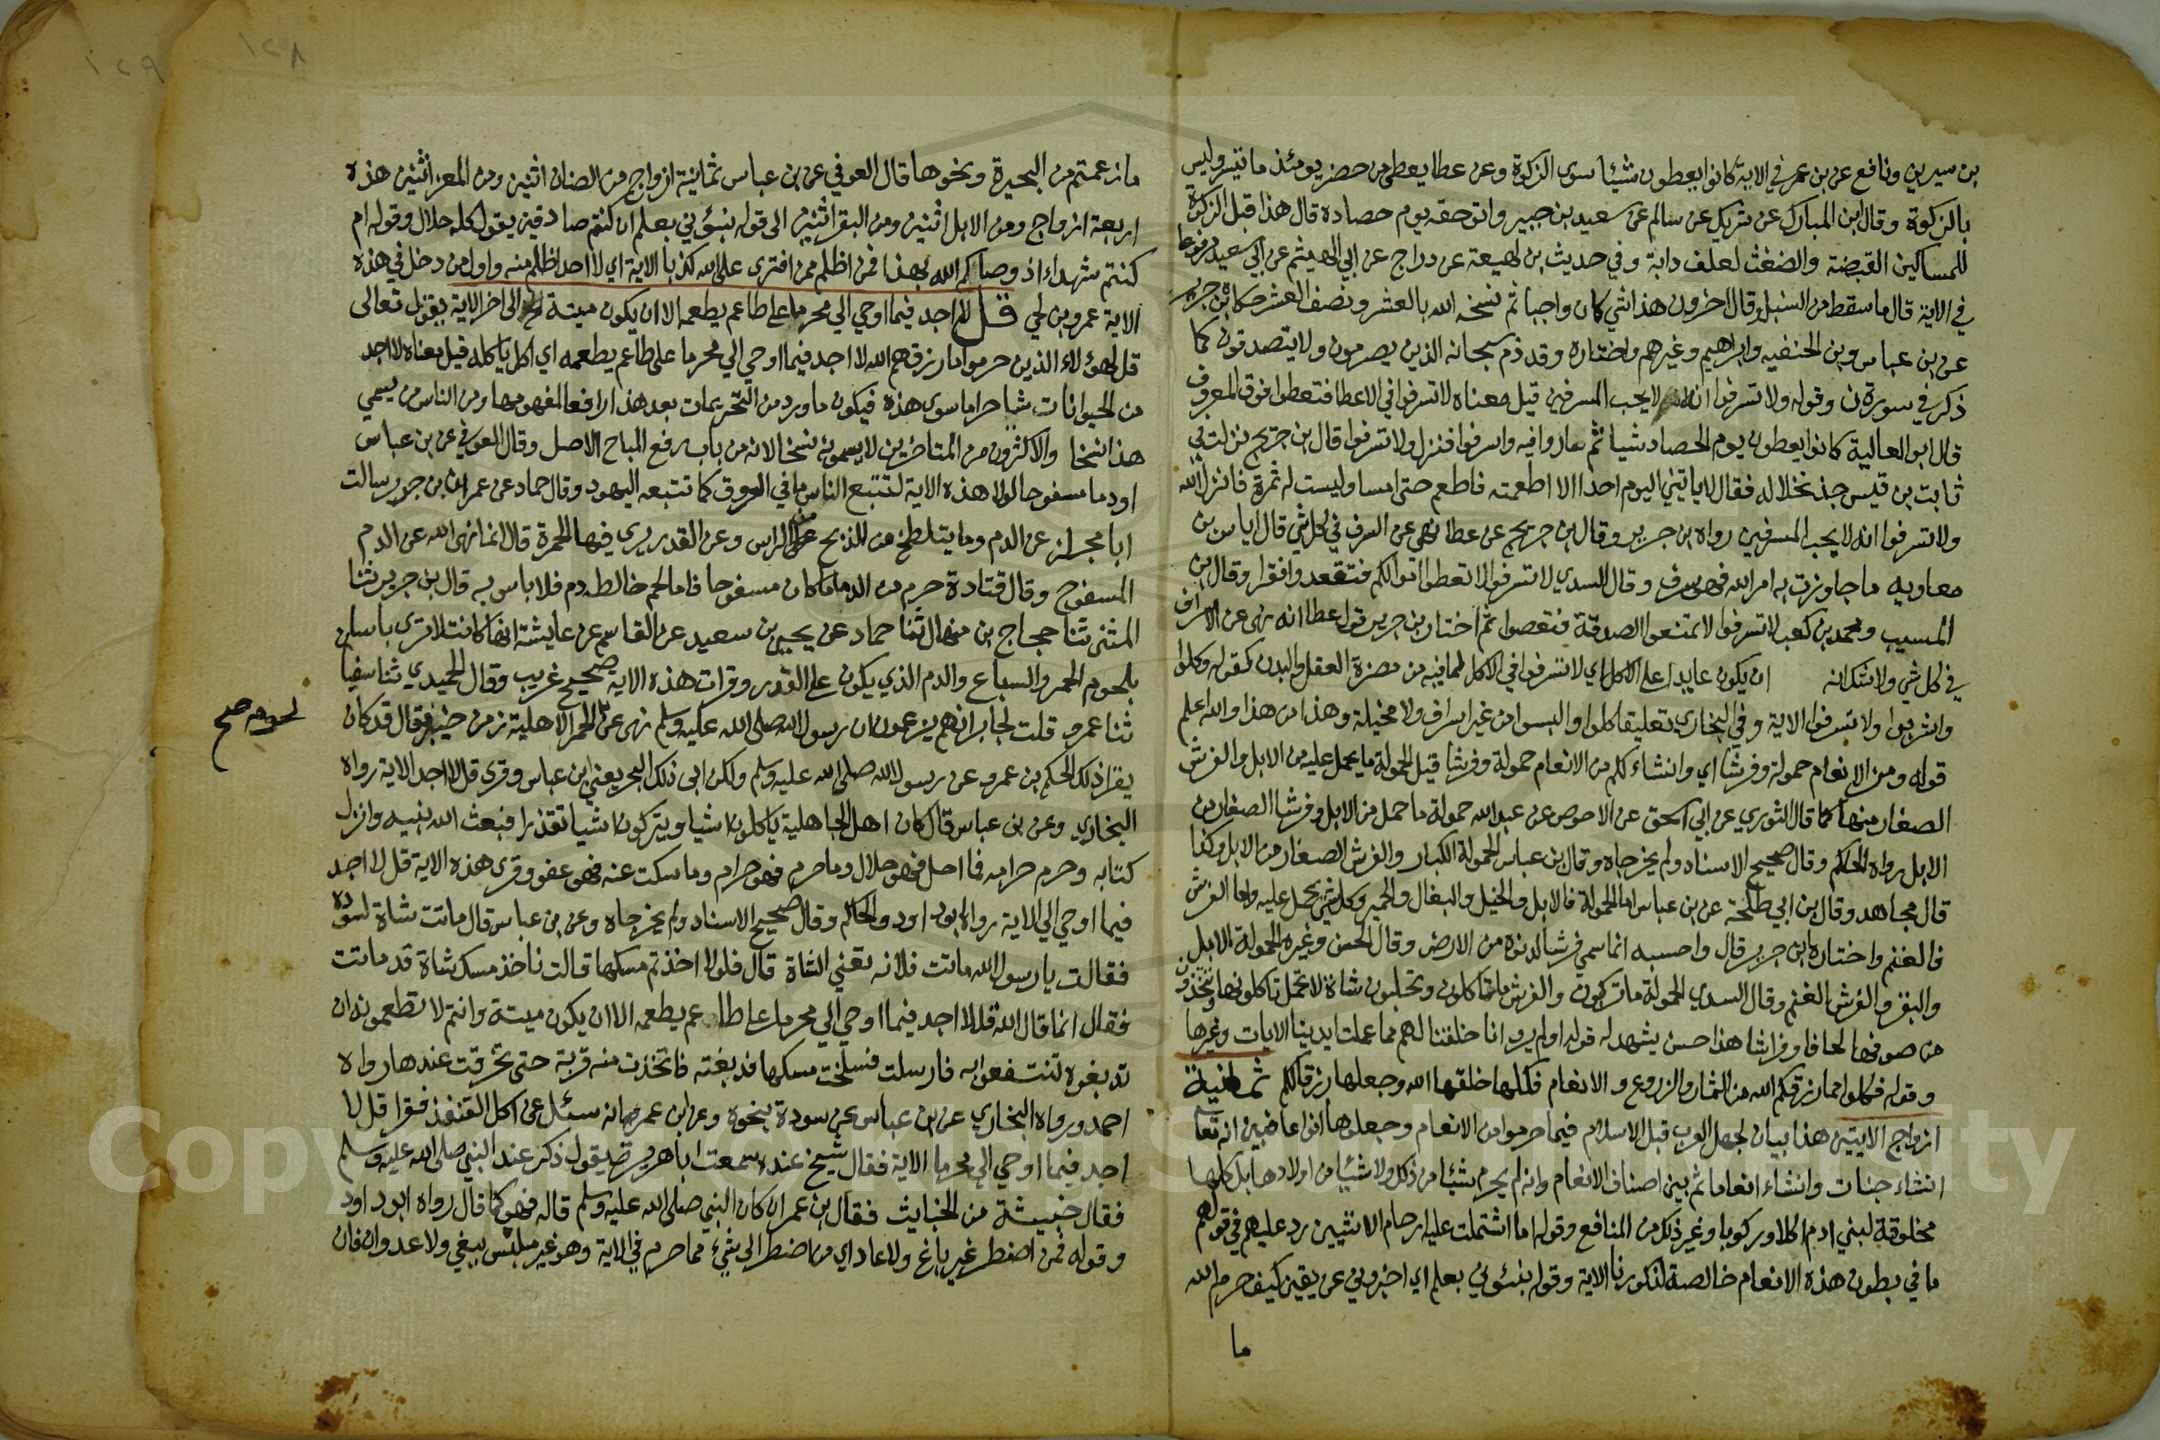 بن سيرين ونافع عن بن عمر في الاية كانوا يعطون شيئا سوى الزكوة وعن عطا يعطي من حضر يومئذ ما تيسر وليس
بالزكوة وقال ابن المبارك عن شريك عن سالم عن سعيد بن جبير واتوا حقه يوم حصاده قال هذا قبل الزكوة
للمساكين القبضة والضغث لعلف دابة وفي حديث بن لهيعة عن دراج عن ابي الهيثم عن ابي سعيد مرفوعا
في الاية قال ما سقط من السنبل وقال اخرون هذا شي كان واجبا ثم نسخه الله بالعشر ونصف العشر حكاه بن جرير
عن بن عباس وبن الحنفيه وابراهيم وغيرهم واختاره وقد ذم سبحانه الذين يصرمون ولا يتصدقون كما
ذكر في سورة ن وقوله ولا تسرفوا انه لا يحب المسرفين قيل معناه لا تسرفوا في الاعطا فتعطوا فوق المعروف
قال ابو العالية كانوا يعطون يوم الحصاد شيا ثم تباروا فيه واسرفوا فنزل ولا تسرفوا قال بن جريج نزلت في
ثابت بن قيس جذ نخلا له فقال لا ياتيني اليوم احد الا اطعمته فاطعم حتى امسا وليست له ثمرة فانزل الله
ولا تسرفوا انه لا يحب المسرفين رواه بن جرير وقال بن جريج عن عطا نهي عن السرف في كل شي قال اياس بن
معاويه ما جاوزت به امر الله فهو سرف وقال السدي لا تسرفوا لا تعطوا اموالكم فتقعدوا فقرا وقال بن
المسيب ومحمد بن كعب لا تسرفوا لا تمنعوا الصدقة فتعصوا ثم اختار بن جرير قول عطا انه نهى عن الاسراف
في كل شي ولا شك انه ان يكون عايدا على الاكل اي لا تسرفوا في الاكل لما فيه من مضرة العقل والبدن كقوله وكلوا
واشربوا ولا تسرفوا الاية وفي البخاري تعليقا كلوا والبسوا من غير اسراف ولا مخيلة وهذا من هذا والله اعلم
قوله ومن الانعام حمولة وفرشا اي وانشاء لكم من الانعام حمولة وفرشا قيل الحمولة ما يحمل عليه من الابل والفرش
الصغار منها كما قال الثوري عن ابي اسحق عن الاحوص عن عبد الله حمولة ما حمل من الابل وفرشا الصغار من
الابل رواه الحاكم وقال صحيح الاسناد ولم يخرجاه وقال بن عباس الحمولة الكبار والفرش الصغار من الابل وكذا
قال مجاهد وقال بن ابي طلحة عن بن عباس اما الحمولة فالابل والخيل والبغال والحمير وكل شي يحمل عليه واما الفرش
فالغنم واختاره ابن جرير قال واحسبه انما سمي فرشا لدنوه من الارض وقال الحسن وغيره الحمولة الابل
والبقر والفرش الغنم وقال السدي الحمولة ما تركبون والفرش ما تاكلون وتحلبون شاة لا تحمل تاكلون لحمها وتتخذون
من صوفها لحافا وفراشا هذا حسن يشهد له قوله اولم يروا انا خلقنا لهم مما عملت ايدينا الايات وغيرها
وقوله فكلوا مما رزقكم الله من الثمار والزروع والانعام فكلها خلقها الله وجعلها رزقا لكم ثمانية
ازواج الايتين هذا بيان لجهل العرب قبل الاسلام فيما حرموا من الانعام وجعلوها انواعا فبين انه تعالى
انشاء جنات وانشاء انعاما ثم بين اصناف الانعام وانه لم يحرم شيئا من ذلك ولا شيئا من اولادها بل كلها
مخلوقة لبني ادم اكلا وركوبا وغير ذلك من المنافع وقوله اما اشتملت عليه ارحام الانثيين رد عليهم في قولهم
ما في بطون هذه الانعام خالصة لذكورنا الاية وقوله نبئوني بعلم اي اخبروني عن يقين كيف حرم الله
ما
١٢٨
١٢٩
ما زعمتم من البحيرة ونحوها قال العوفي عن بن عباس ثمانية ازواج من الضان اثنين ومن المعز اثنين هذه
اربعة ازواج ومن الابل اثنين ومن البقر اثنين الى قوله نبئوني بعلم ان كنتم صادقين يقول كله حلال وقوله ام
كنتم شهداء اذ وصاكم الله بهذا فمن اظلم ممن افترى على الله كذبا الاية اي لا احد اظلم منه واول من دخل في هذه
الاية عمرو بن لحي قل لا اجد فيما اوحي الي محرما على طاعم يطعمه الا ان يكون ميتة الى اخر الاية يقول تعالى
قل لهؤلاء الذين حرموا ما رزقهم الله لا اجد فيما اوحي الي محرما على طاعم يطعمه اي اكل ياكله قيل معناه لا اجد
من الحيوانات شيا حراما سوى هذه فيكون ما ورد من التحريمات بعد هذا رافعا لمفهومها ومن الناس من يسمي
هذا نسخا والاكثرون من المتاخرين لا يسمونه نسخا لانه من باب رفع المباح الاصل وقال العوفي عن بن عباس
او دما مسفوحا لولا هذه الاية لتتبع الناس ما في العروق كما تتبعه اليهود وقال حماد عن عمران بن جرير سالت
ابا مجلز عن الدم وما يتلطخ من الذبح من الراس وعن القدر يرى فيها الحمرة قال انما نهى الله عن الدم
المسفوح وقال قتادة حرم من الدما ما كان مسفوحا فاما لحم خالطه دم فلا باس به قال بن جرير ثنا
المثنى ثنا حجاج بن منهال ثنا حماد عن يحيى بن سعيد عن القاسم عن عايشة انها كانت لا ترى باسا
بلحوم الحمر والسباع والدم الذي يكون على القدر وقرات هذه الاية صحيح غريب وقال الحميدي ثنا سفيان
ثنا عمرو قلت لجابر انهم يزعمون ان رسول الله صلى الله عليه وسلم نهى عن الحمر الاهلية زمن خيبر فقال قد كان
لحوم صح
يقول ذلك الحكم بن عمرو عن رسول الله صلى الله عليه وسلم ولكن ابى ذلك البحر يعني ابن عباس وقرى قل لا اجد الاية رواه
البخاري وعن بن عباس قال كان اهل الجاهلية ياكلون شيا ويتركون اشيا تقذرا فبعث الله نبيه وانزل
كتابه وحرم حرامه فما احل فهو حلال وما حرم فهو حرام وما سكت عنه فهو عفو وقرى هذه الاية قل لا اجد
فيما اوحي الي الاية رواه ابو داود والحاكم وقال صحيح الاسناد ولم يخرجاه وعن بن عباس قال ماتت شاة لسودة
فقالت يا رسول الله ماتت فلانه تعني الشاة قال فلولا اخذتم مسكها قالت ناخذ مسك شاة قد ماتت
فقال انما قال الله قل لا اجد فيما اوحي الي محرما على طاعم يطعمه الا ان يكون ميتة وانتم لا تطعمونه ان
تدبغوه لتنتفعوا به فارسلت فسلخت مسكها فدبغته فاتخذت منه قربة حتى تخرقت عندها رواه
احمد ورواه البخاري عن بن عباس عن سودة بنحوه وعن ابن عمر انه سئل عن اكل القنفذ فقرا قل لا
اجد فيما اوحي الي محرما الاية فقال شيخ عنده سمعت ابا هريرة يقول ذكر عند النبي صلى الله عليه وسلم
فقال خبيثة من الخبايث فقال بن عمر ان كان النبي صلى الله عليه وسلم قاله فهو كما قال رواه ابو داود
وقوله فمن اضطر غير باغ ولا عاد اي من اضطر الى شيء مما حرم في الاية وهو غير متلبس ببغي ولا عدوان فان